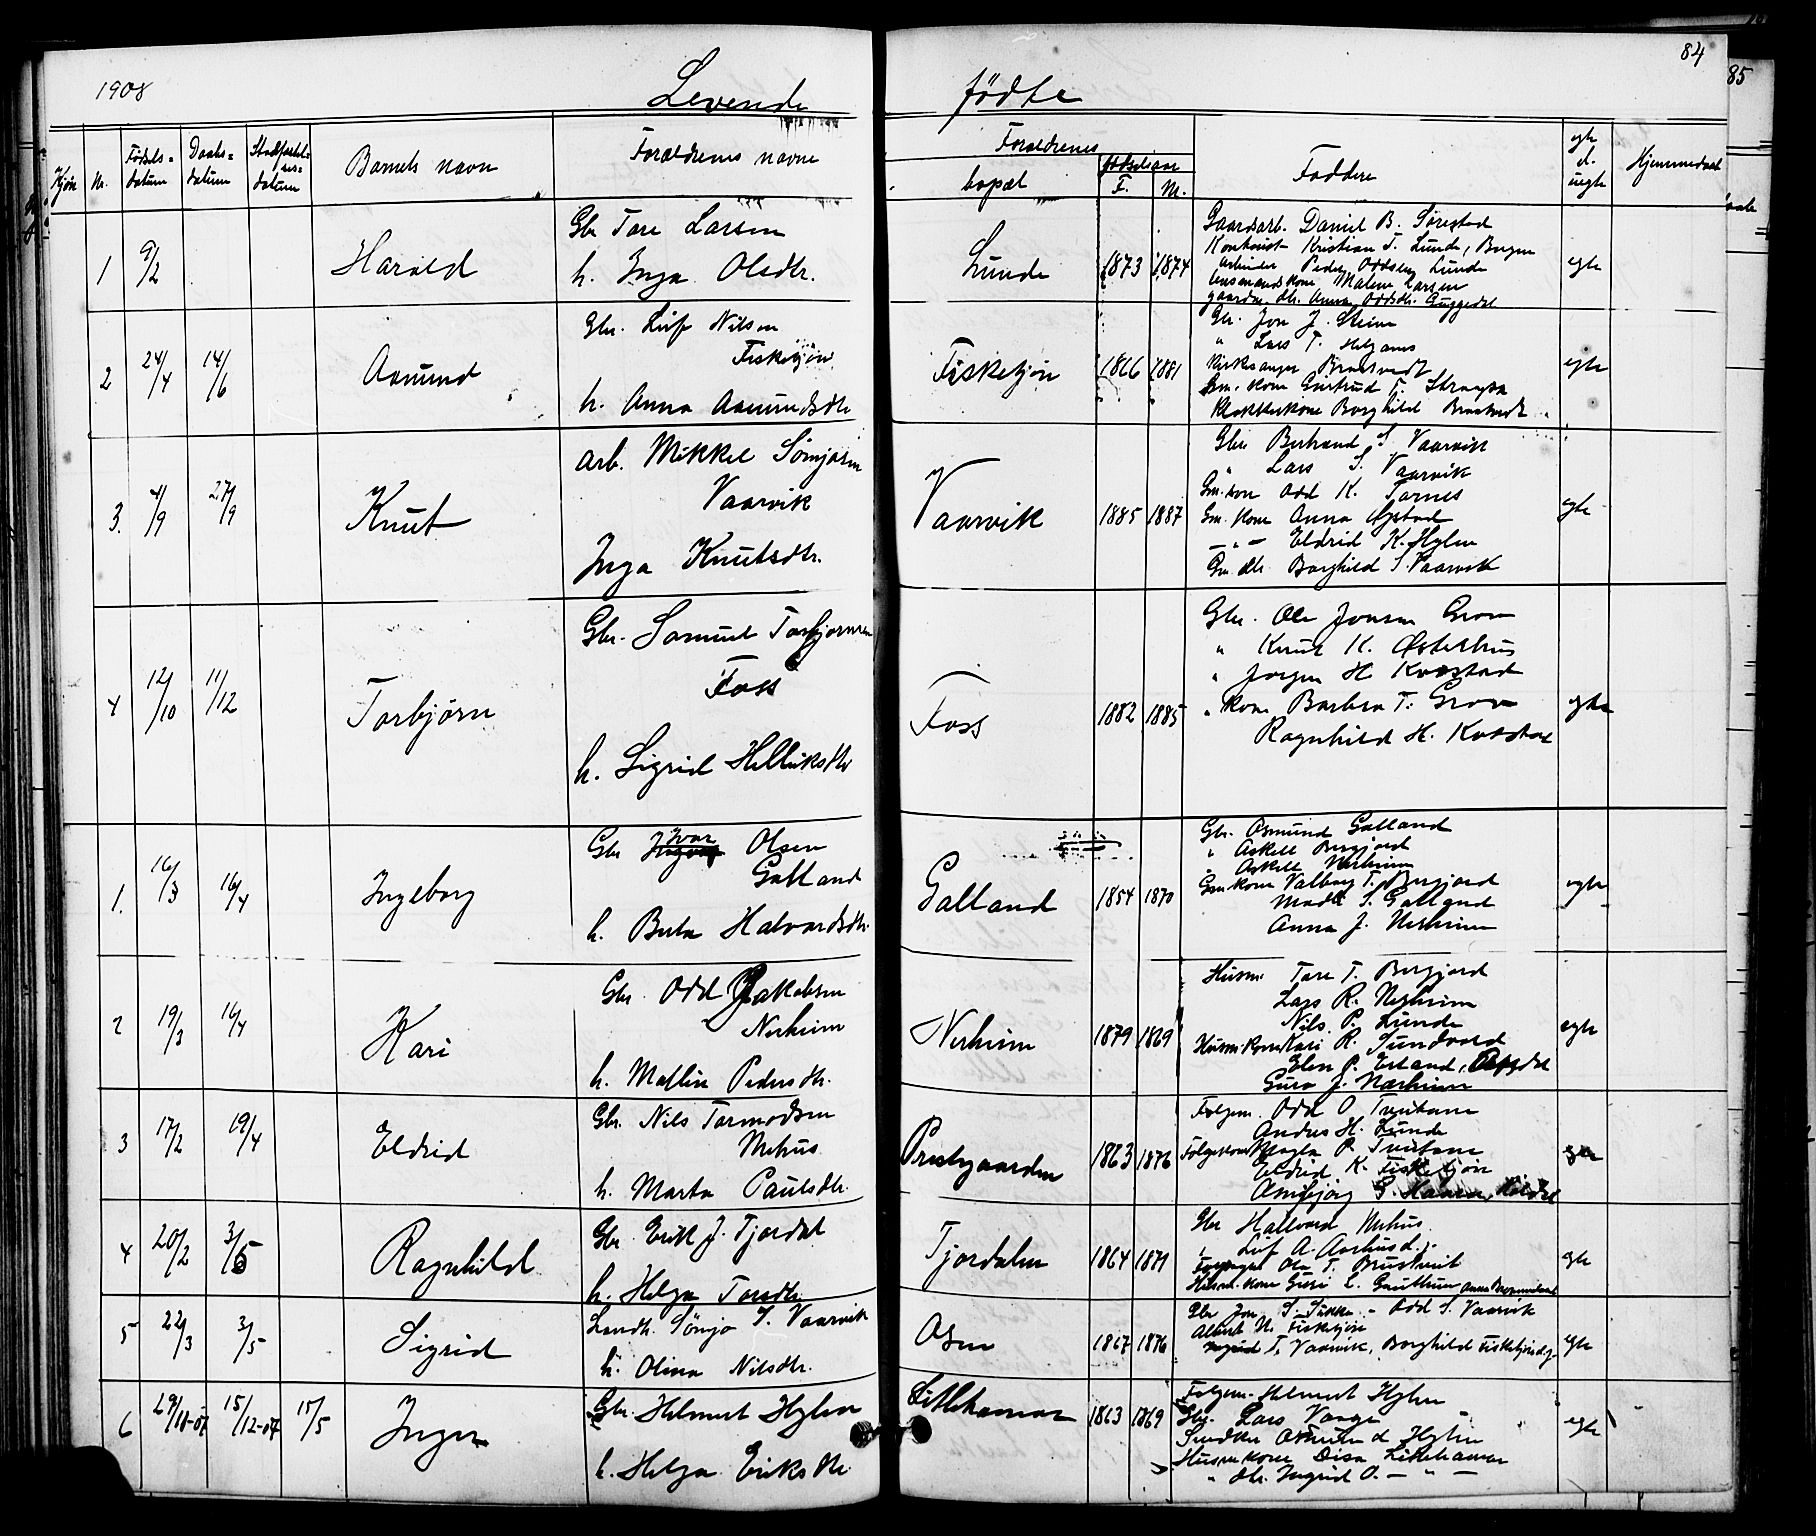 1908 Levende fødte 84
85
Kjøn Nr. Fødsels-datum Daabs-datum Stadfæstelses-datum Barnets navn Forældrenes navne Forældrenes bopæl fødselsaar F. M. Faddere egte el. uegte Hjemmedaab
1 9/2 Harald
Gbr Tore Larsen
h. Inga Olsdtr.
Lunde 1873 1874
Gaardarb. Daniel B. Sørestad
Kontorist Kristian T. Lunde, Bergen
Arbeider Peder Oddsen Lunde
Lensmandskone Malene Larsen
gaardm. dtr. Anna Oddsdtr. Guggedal
egte
2 24/4 14/6 Aamund
Gbr. Leif Nilsen
Fisketjøn
h. Anna Aamundsdtr
Fisketjøn 1866 1881
Gbr. Jon J. Steine
" Lars T. Helganes
Kirkesanger Brustveit
Gm. kone Gjertrud T.
Klokkerkone Borghild Brustveit
egte
3. 4/9 27/9 Knut
arb. Mikkel Sømjasen
Vaarvik
Inga Knutsdtr.
Vaarvik 1885 1887
Gbr Bertrand S. Vaarvik
" Lars S. Vaarvik
Gm. søn Odd K. Tornes
Gm. kone Anna Øystad
— " — Eldrid K. Hylen
Gm. dtr. Borghild S. Vaarvik
egte
4 12/10 11/12 Torbjørn
Gbr. Samuel Torbjørnsen
Foss
h. Sigrid Helliksdtr
Foss 1882 1885
Gbr. Ole Jonsen Grov
" Knut K. Østerhus
" Jorgen H. Kvæstad
" kone Barbra T. Grov
Ragnhild H. Kvæstad
egte
1. 16/3 16/4 Ingeborg
Gbr Ivar Olsen
Galland
h. Berta Halvardsdtr.
Galland 1854 1870
Gbr. Osmund Galland
" Askell Bergjord
" Askell Nerheim
Gm kone Valborg T. Bergjord
Madli S. Galland
Anna J. Nerheim
egte
2 19/3 16/4 Kari
Gbr. Odd Jakobsen
Nerheim
h. Mallin Pedersdtr.
Nerheim 1879 1869
Husm. Tore T. Bergjord
Lars R. Nerheim
Nils P. Lunde
Husm. kone Kari R. Sundvord
Elen P. Erland,
Guro J. Nærheim
egte
3 17/2 19/4 Eldrid
Gbr. Nils Tormodsen
Mehus
h. Marta Paulsdtr.
Prestegaarden 1863 1876
Følgem. Odd O. Tveitane
Anders H. Lunde
Følgekone Magla P. Tveitane
Eldrid K. Fisketjøn
egte
4 20/2 3/5 Ragnhild
Gbr. Erik J. Tjordal
h. Helga Torsdtr.
Tjordalen 1864 1871
Gbr Hallvard Mehus
" Leif A. Aarhus
Ola T. Brustveit
Husm. kone Guri L.
egte
5 22/3 3/5 Sigrid
Landh. Sømja T. Vaarvik
h. Olina Nilsdtr.
Osen 1867 1876
Gbr Jon S. - Odd S. Vaarvik
Albert N. Fisketjøn
Ingrid T. Vaarvik, Borghild Fisketjøn
egte
6 29/11-07 15/12-07 15/5 Inger
Gbr. Helmert Hylen
h. Helga Eriksdtr.
Litlehamar 1863 1869
Følgem. Helmert Hylen
Gbr. Lars Vaage
Snedker Osmund Hylen
Husm. kone Disa Litlehamar
" dtr. Ingrid O. — " —
egte